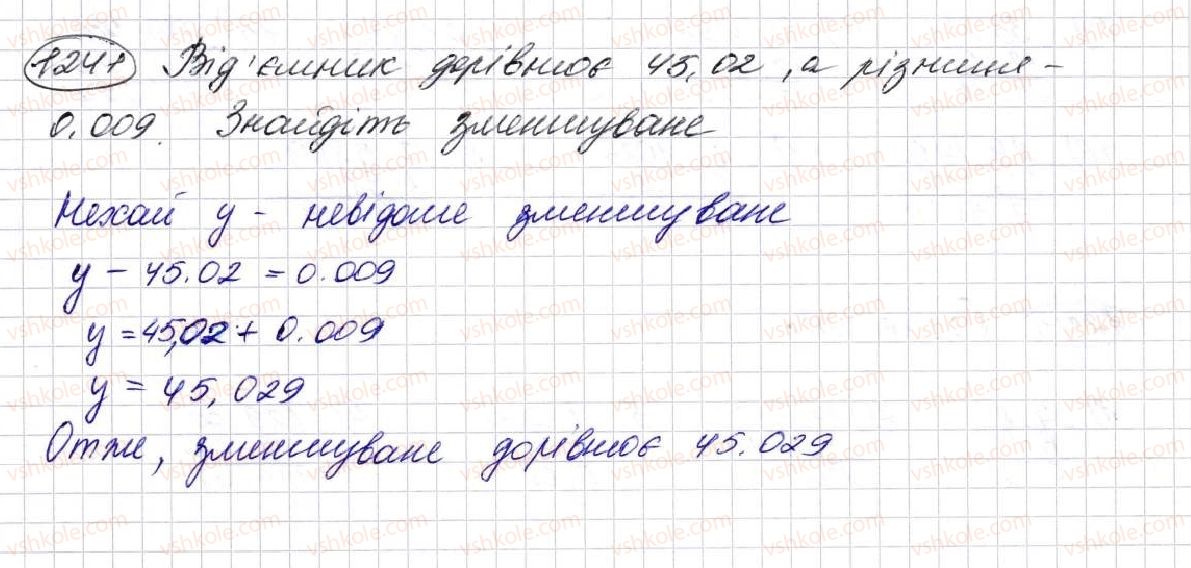 1241 Від'ємник дорівнює 45,02, а різниця -
0.009. Знайдіть зменшуване
Нехай y - невідоме зменшуване
y - 45.02 = 0.009
y = 45,02 + 0.009
y = 45,029
Отже, зменшуване дорівнює 45.029